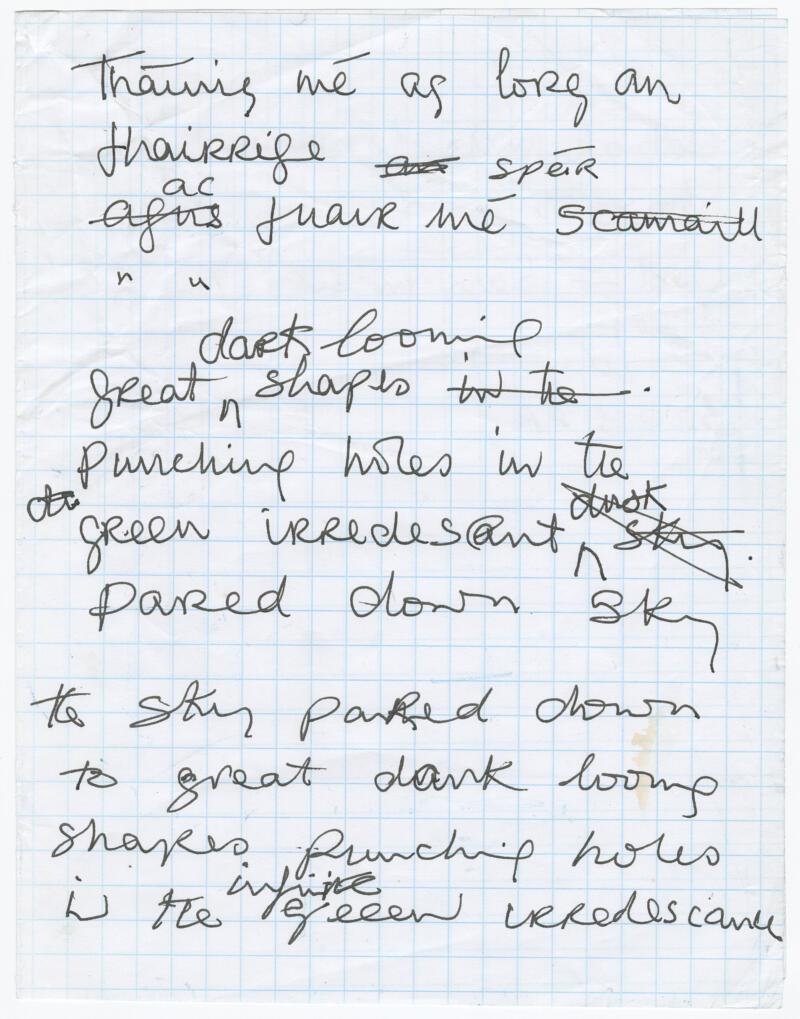 Tháinig mé ag lorg an
fhairrige spéir
ac
agus fuair mé scamaill
" "
dark looming
great shapes in the .
punching holes in the
dusk
green irredescant sky.
pared down sky
the sky pared down
to great dark looming
shapes punching holes
infinite
in the green irredescance